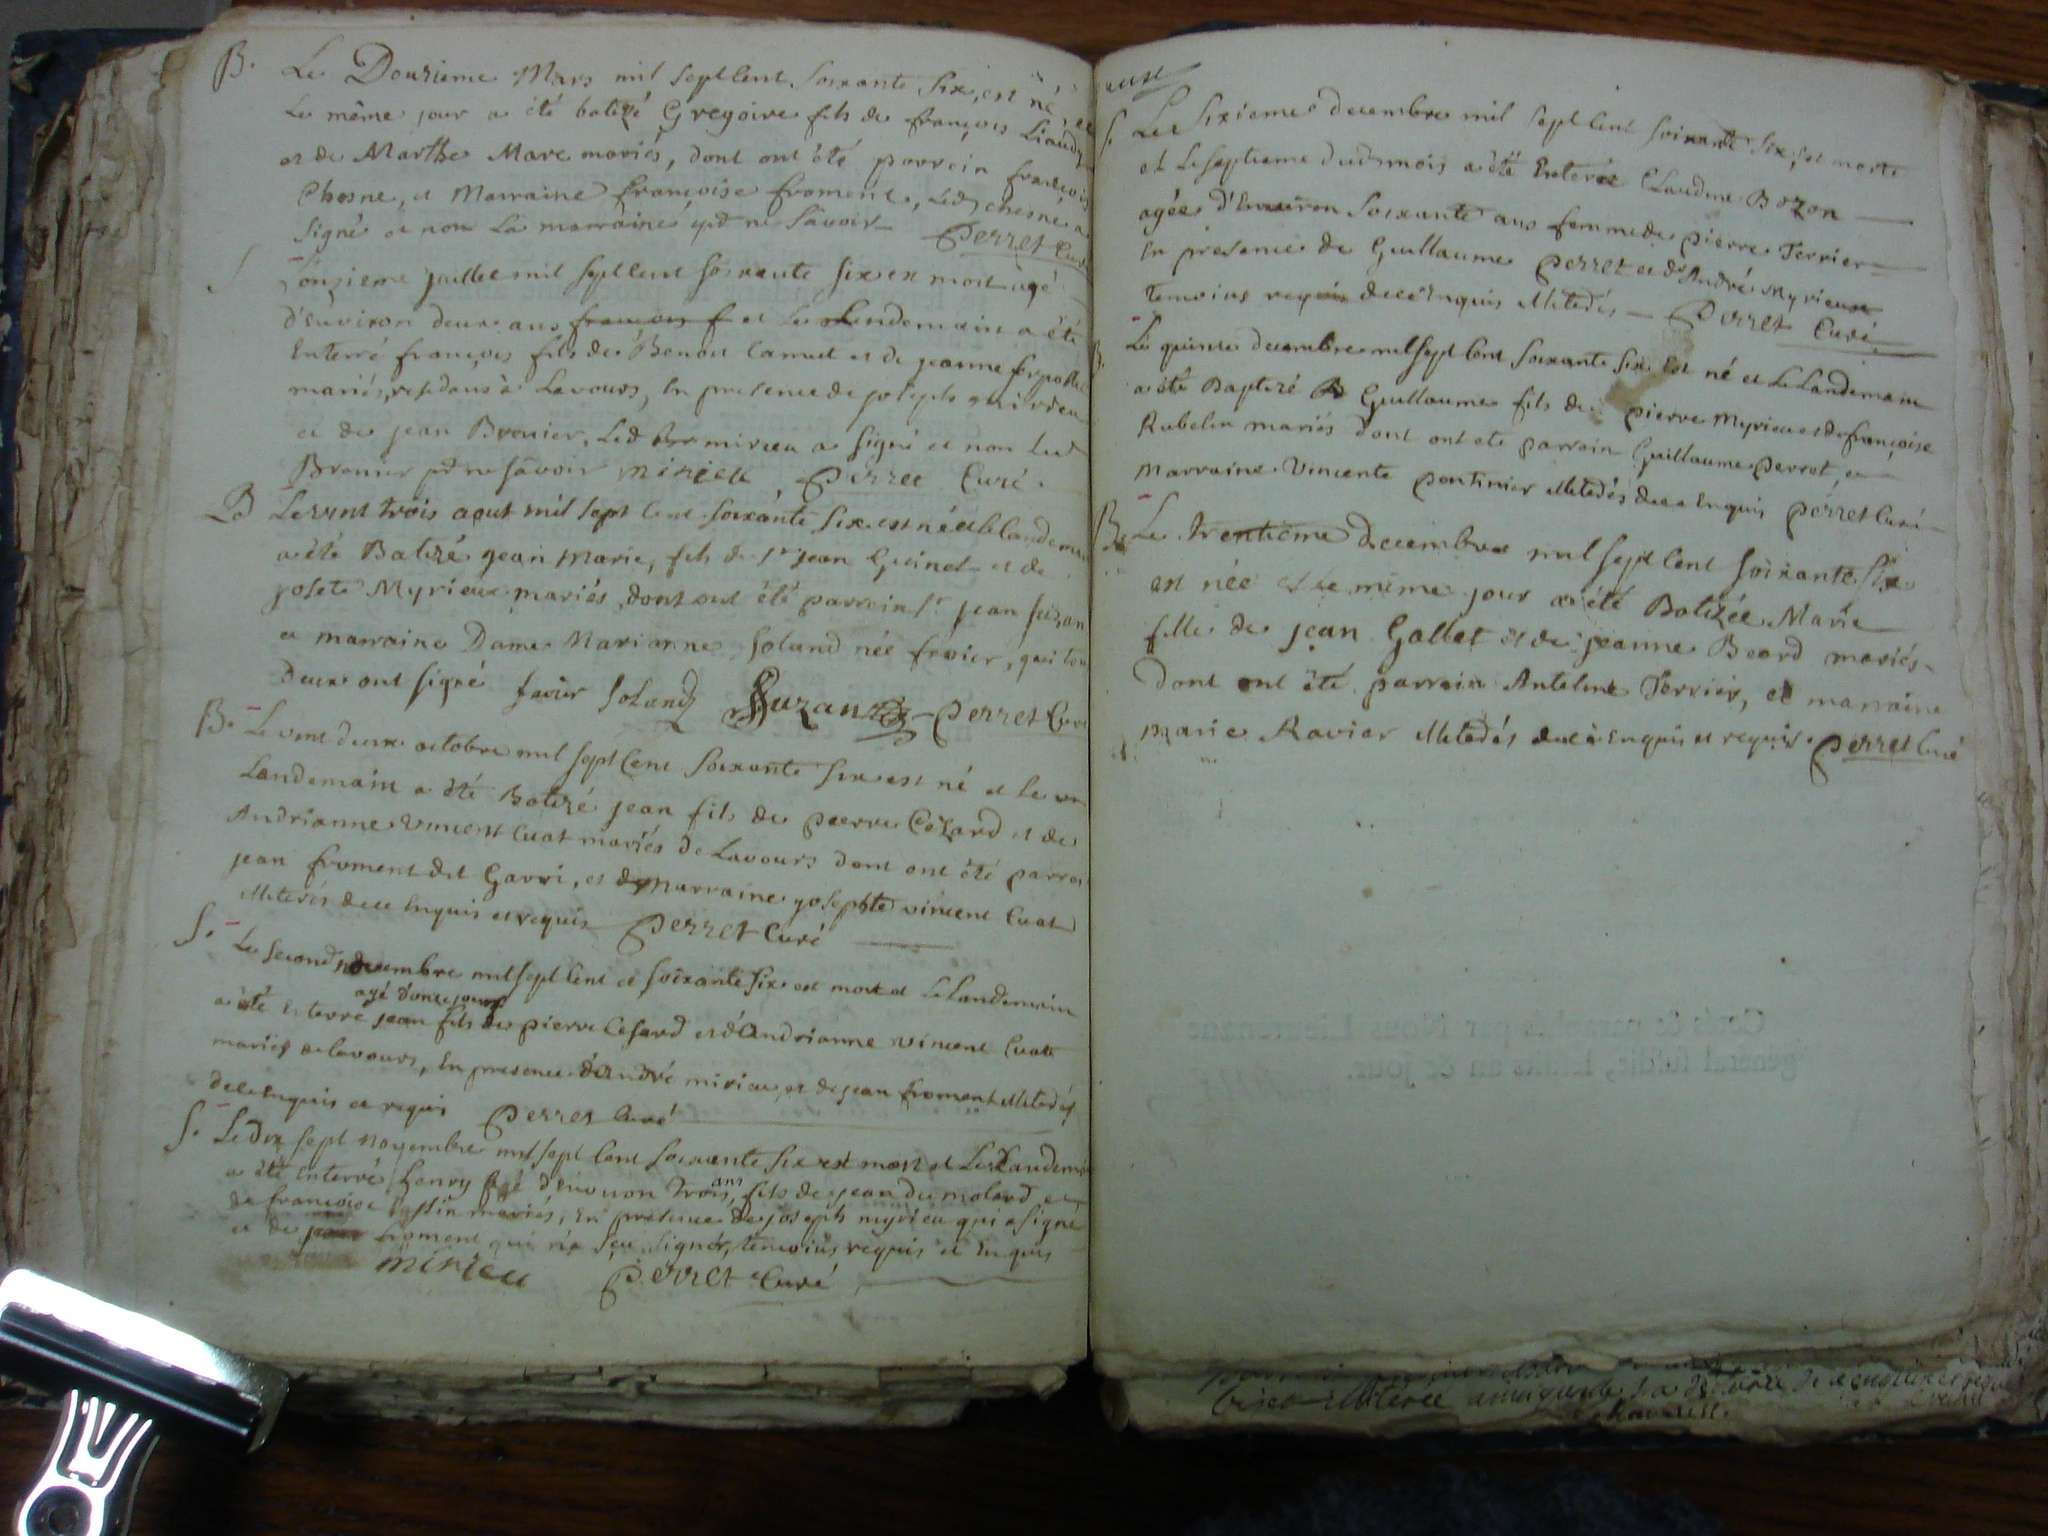 B. Le Douzieme Mars mil sept Cent soixante six, est né, et
Le même jour a été batizé Gregoire fils de françois Liaudy
et de Marthe Marc mariés, dont ont été parrein françois
Chesne, et Marraine françoise froment, Led chesne a
signé et non La marraine pr ne sâvoir Perret Curé
S onzieme juillet mil sept cent soixante six est mort agé
d'Environ deux ans françois f et Le Lendemain a été
Enterré françois fils de Benoit Camut et de jeanne
mariés, residans à Lavours, En presence de joseph mirieu
et de jean Brenier, Led mirieu a signé et non Led
Brenier pr ne sâvoir mirieu Perret Curé.
B Le vint trois aout mil sept Cent soixante six est né et le landemain
a été Batizé jean marie, fils de Sr jean Guinet et de
josete Myrieux mariés, dont ont été parrein Sr jean suzan
et marraine Dame Marianne Soland née fravier, qui tou
deux ont signé Soland Suzan Perret Curé
B. Le vint deux octobre mil sept Cent soixante six est né et le
Landemain a été Batizé jean fils de pierre Cézard et de
Andrianne vincent Cuat mariés de Lavours dont ont été parrei
jean froment dit Gavri, et marraine josephte vincent Cuat
illiterés de ce Enquis et requis Perret Curé
S. Le second novembre mil sept Cent et soixante six est mort et Le Landemain
agé d'onze jours
a été Enterré jean fils de pierre Cesard et d'Andrianne vincent Cuat
mariés de lavours, En presence d'André mirieu, et de jean froment illiterés
de ce Enquis et requis Perret Curé
S. Le dix sept novembre mil sept Cent soixante six est mort et Le Landemain
ans
a été Enterré henry agé d'Environ trois, fils de jean du molard et
de françoise mariés, En presence de joseph myrieu qui a signé
et de froment qui n'a sçu signer, temoins requis et Enquis
mirieu Perret Curé
S. Le sixieme decembre mil sept Cent soixante six, est morte
et Le septieme dud mois a été Enterée Claudine Bozon
agée d'Environ soixante ans femme de pierre Terrier
En presence de Guillaume Perret et d'André Myrieux
temoins requis de ce Enquis illiterés Perret Curé
B. Le quinze decembre mil sept Cent soixante six Est né et Le Landemain
a été Baptizé Guillaume fils de pierre Myrieu et de françoise
Rubelin mariés dont ont été parrain Guillaume Perret, et
marraine Vincente Pontinier illiterés de ce Enquis Perret Curé
B. Le trentième decembre mil sept Cent soixante six
est née et Le même jour a été Batizée Marie
fille de jean Gallet et de jeanne Beard mariés
dont ont été parrein Antelme Terrier, et marraine
marie Ravier illiterés de ce Enquis et requis Perret Curé